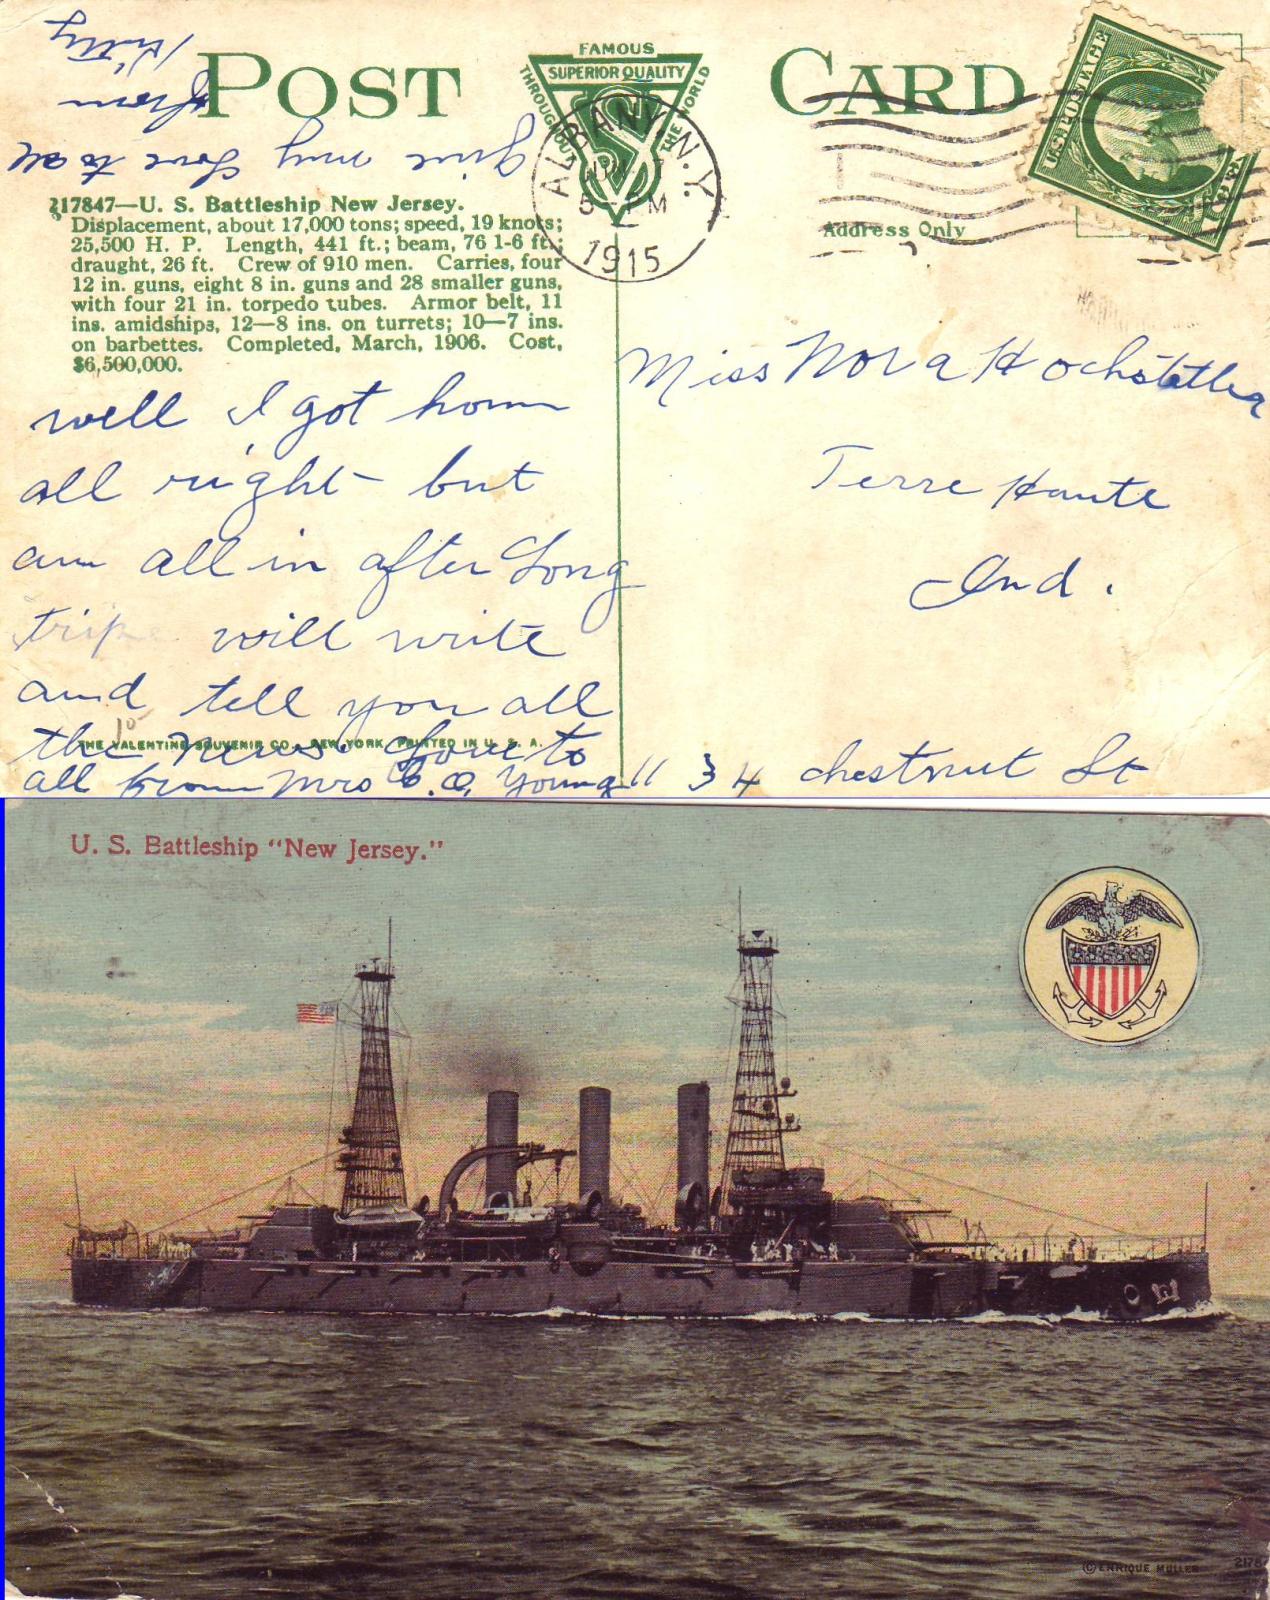 POST CARD
FAMOUS
SUPERIOR QUALITY
THROUGHOUT THE WORLD
U.S. POSTAGE
ALBANY, N.Y.
5 - PM
1915
Address Only
217847—U. S. Battleship New Jersey.
Displacement, about 17,000 tons; speed, 19 knots;
25,500 H. P. Length, 441 ft.; beam, 76 1-6 ft.;
draught, 26 ft. Crew of 910 men. Carries, four
12 in. guns, eight 8 in. guns and 28 smaller guns,
with four 21 in. torpedo tubes. Armor belt, 11
ins. amidships, 12—8 ins. on turrets; 10—7 ins.
on barbettes. Completed, March, 1906. Cost,
$6,500,000.
well I got hom
all right but
am all in after Long
trip will write
and tell you all
the news. Love to
all from Mrs C. A. Young
give my Love to all
from
Kitty
THE VALENTINE SOUVENIR CO., NEW YORK. PRINTED IN U. S. A.
Miss Nora Hochstetler
Terre Haute
Ind.
1134 chestnut St
U. S. Battleship “New Jersey.”
© ENRIQUE MULLER